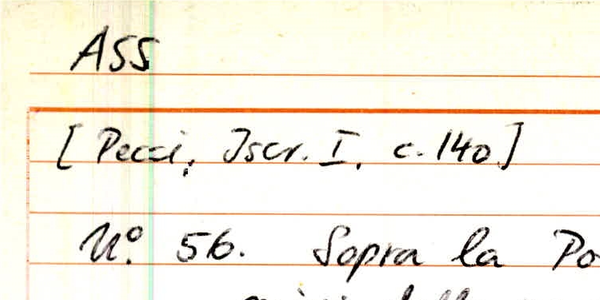 ASS
[Pecci, Iscr. I, c. 140]
N.º 56. Sopra la Po